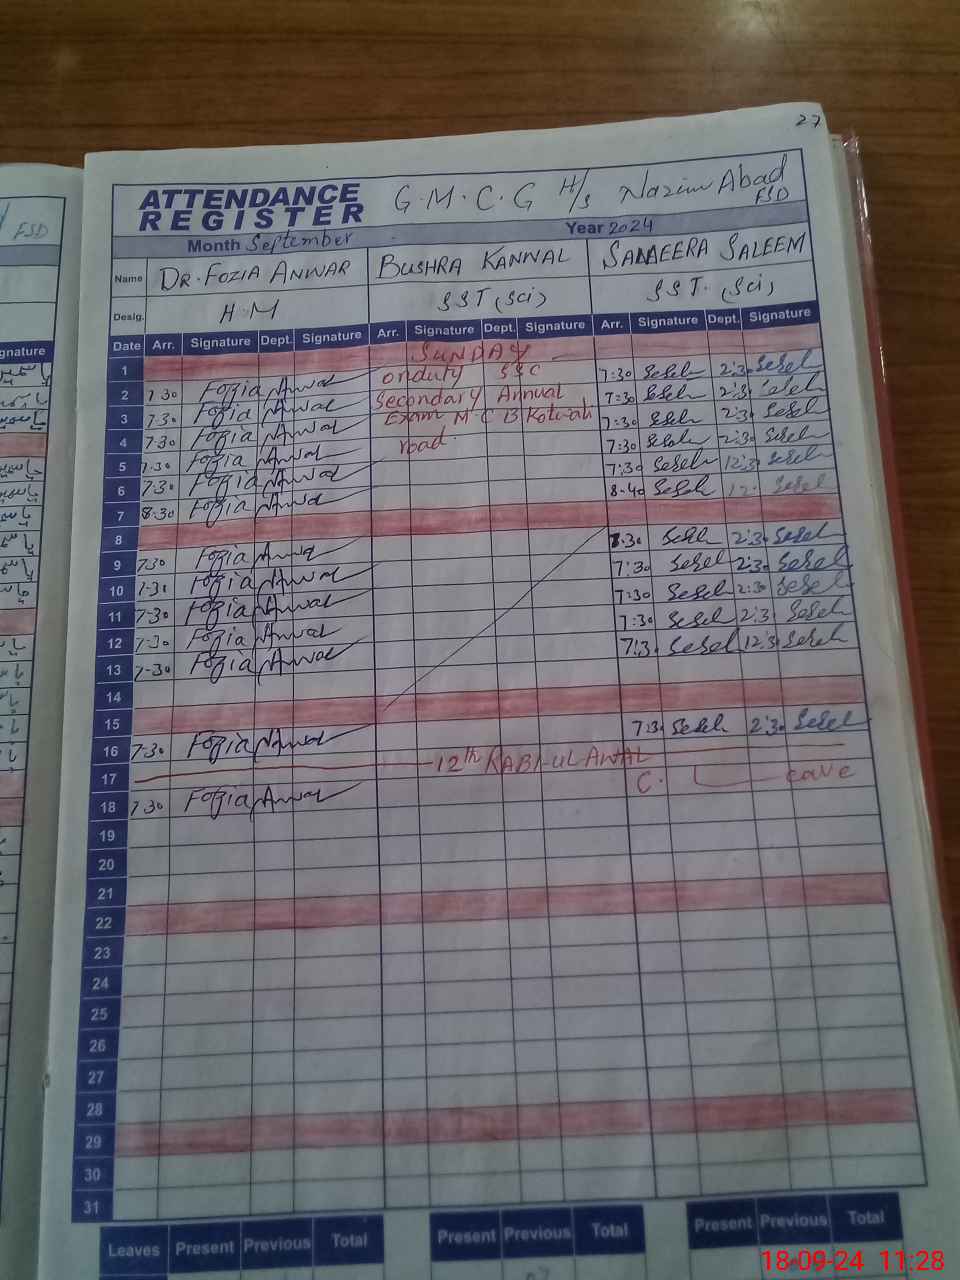 27
ATTENDANCE REGISTER G.M.C.G H/S Nazim Abad FSD
FSD
Month September Year 2024
Name DR. FOZIA ANWAR BUSHRA KANWAL SAMEERA SALEEM
Desig. H.M SST (Sci) SST. (Sci)
Date Arr. Signature Dept. Signature Arr. Signature Dept. Signature Arr. Signature Dept. Signature
gnature
1 SUNDAY
2 7.30 Fozia Anwar onduty SSC 7:30 2:30
3 7.30 Fozia Anwar Secondary Annual 7:30 2:30
4 7.30 Fozia Anwar Exam M C B Kotwali 7:30 2:30
5 7.30 Fozia Anwar road. 7:30 2:30
6 7.30 Fozia Anwar 7:30 12:3
7 8.30 Fozia Anwar 8-40 12
8
9 7.30 Fozia Anwar 7.30 2:30
10 7-30 Fozia Anwar 7:30 2:30
11 7-30 Fozia Anwar 7:30 2:30
12 7-30 Fozia Anwar 7:30 2:30
13 7-30 Fozia Anwar 7:3 12:3
14
15
16 7-30 Fozia Anwar 7:30 2:30
17 12th RABI-UL AWAL
18 7.30 Fozia Anwar C. Leave
19
20
21
22
23
24
25
26
27
28
29
30
31
Leaves Present Previous Total Present Previous Total Present Previous Total
18-09-24 11:28